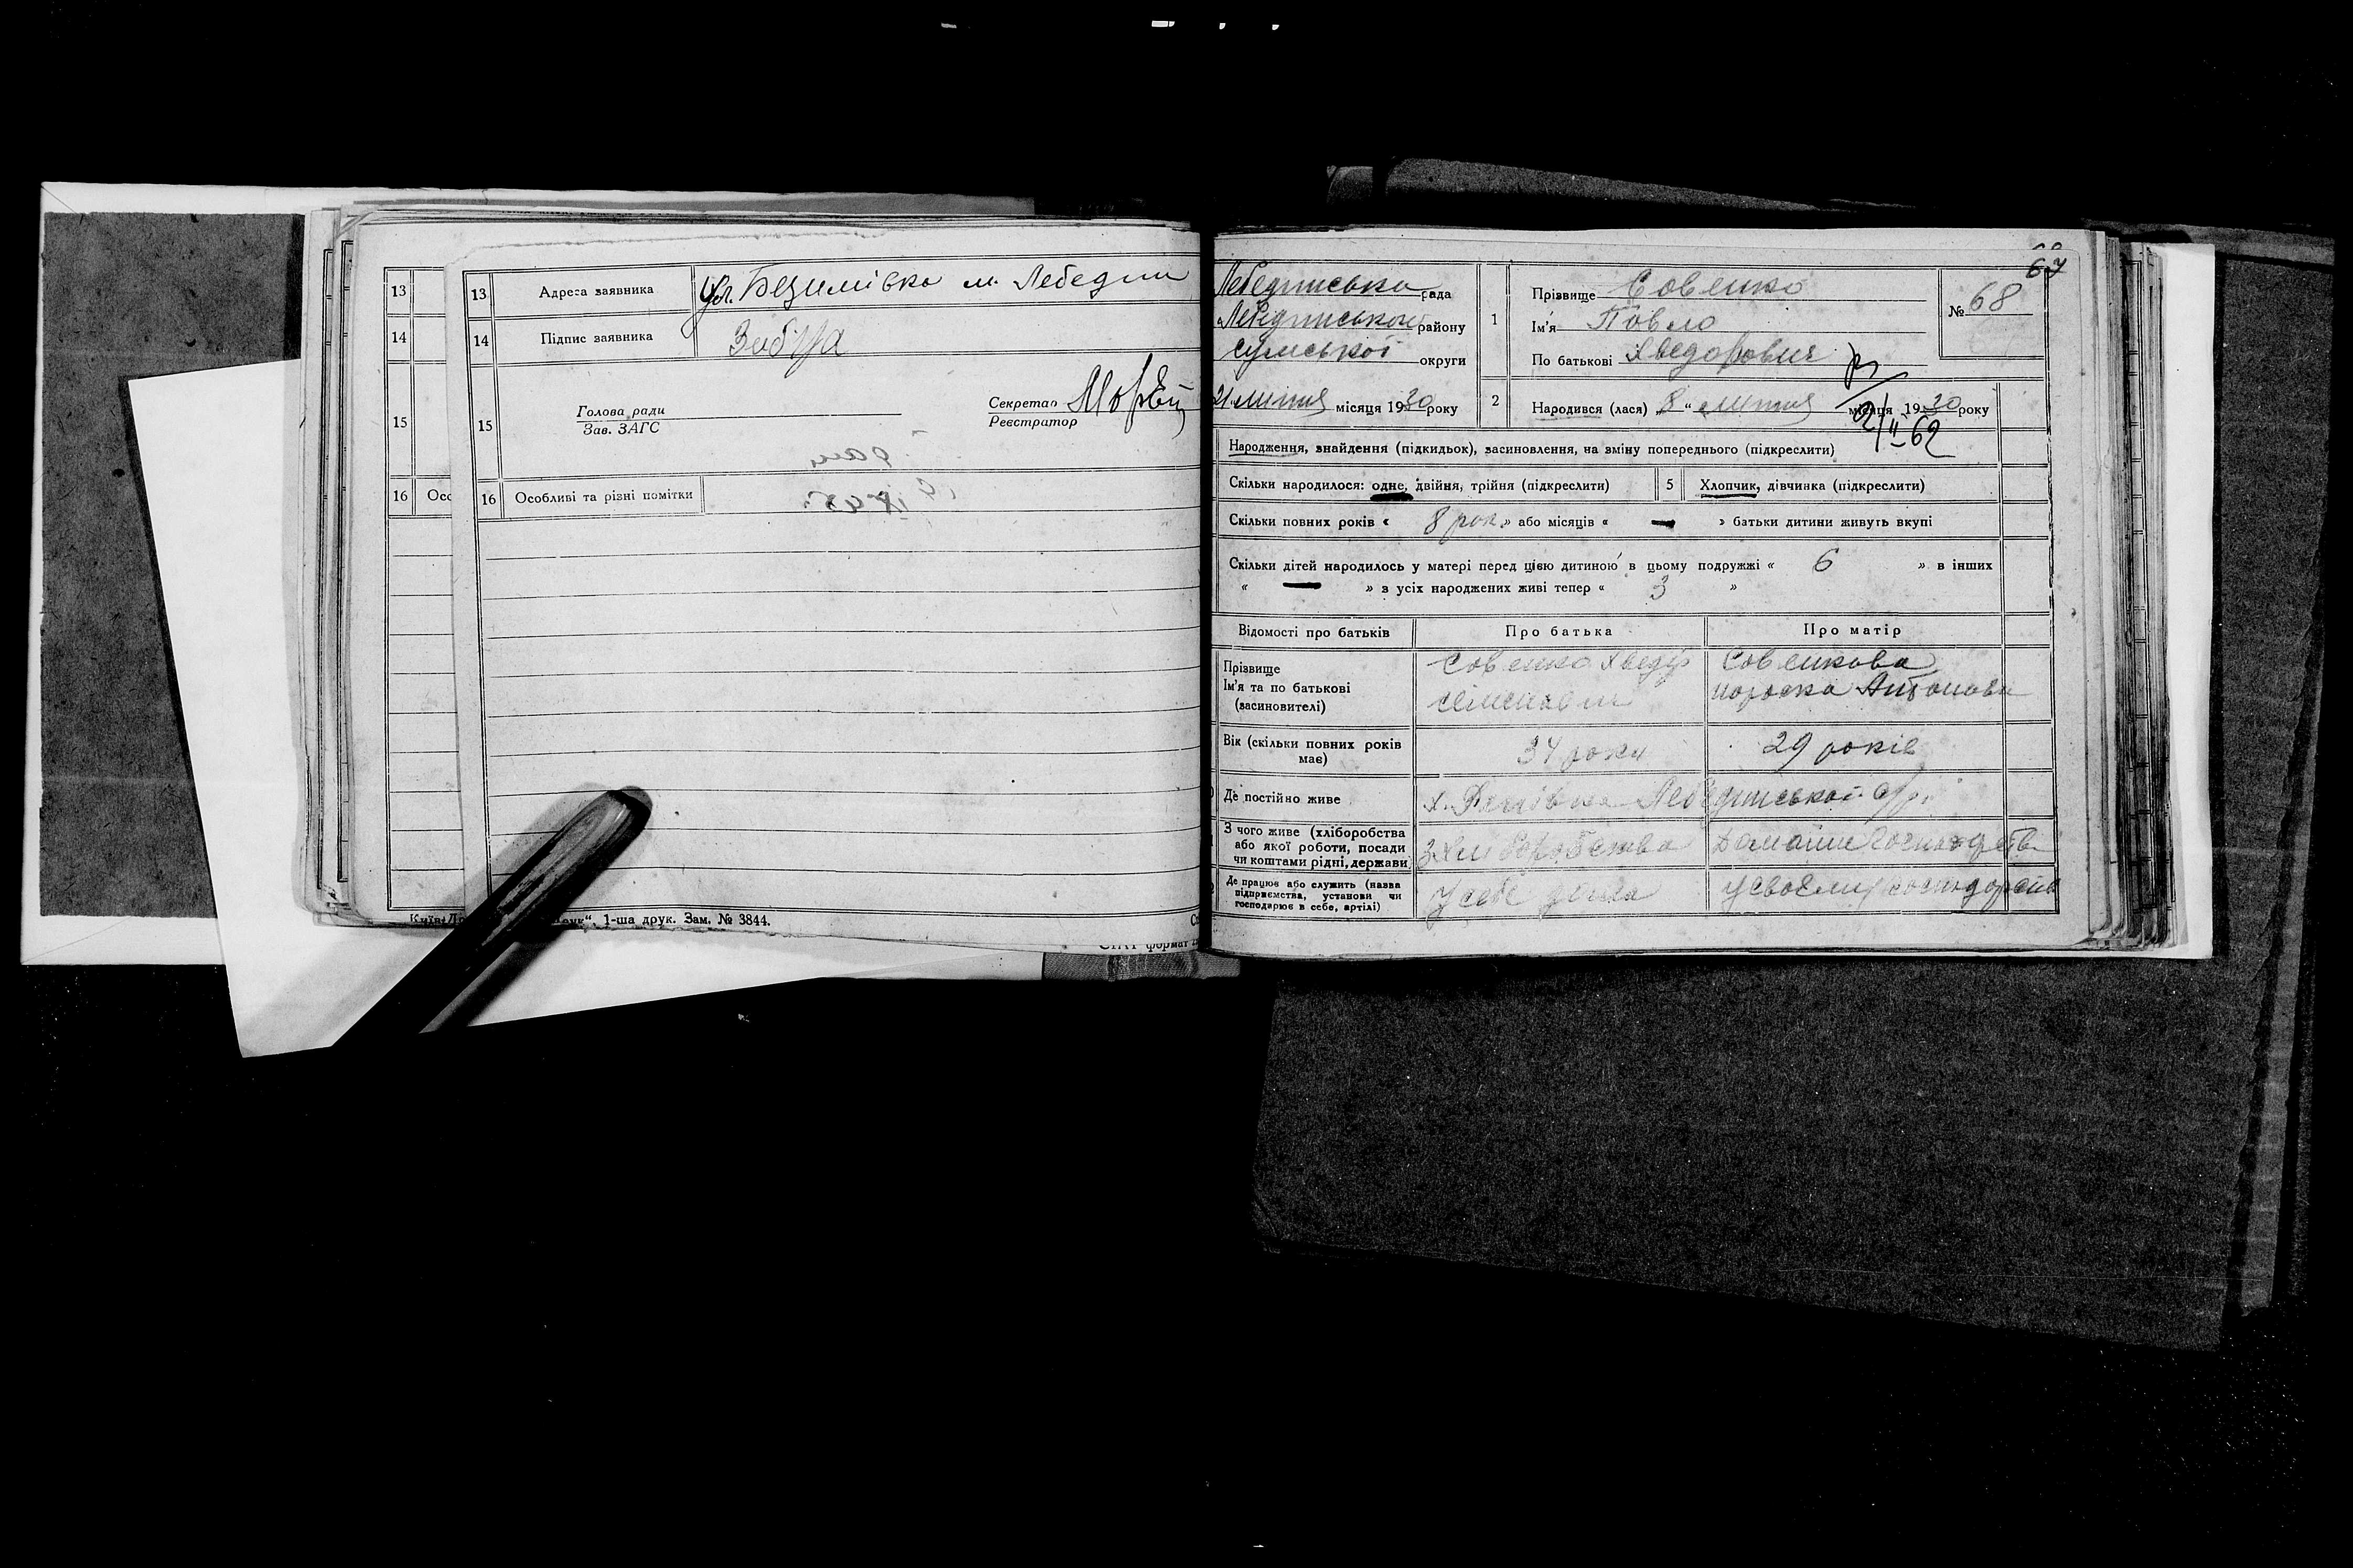 13
14
16 Осо
13 Адреса заявника Ул. Безимівка м. Лебедин
14 Підпис заявника
15 Голова ради
Зав. ЗАГС
Секретар
Реєстратор
16 Особливі та різні помітки
1-ша друк. Зам. № 3844.
67
Лебединська рада
Лебединського району
Сумської округи
21 лютня місяця 1930 року
1 Прізвище Совенко
Ім'я Павло
По батькові Хведорович
№ 68
2 Народився (лася) „8“ лютня місяця 1930 року
21/II 62
Народження, знайдення (підкидьок), засиновлення, на зміну попереднього (підкреслити)
Скільки народилося: одне, двійня, трійня (підкреслити) 5 Хлопчик, дівчинка (підкреслити)
Скільки повних років « 8 рок » або місяців « — » батьки дитини живуть вкупі
Скільки дітей народилось у матері перед цією дитиною в цьому подружжі « 6 » в інших
« — » з усіх народжених живі тепер « 3 »
Відомості про батьків Про батька Про матір
Прізвище
Ім'я та по батькові
(засиновителі)
Совенко Хведір
Совенкова
Вік (скільки повних років
має)
34 роки 29 років
Де постійно живе х. Лебединської
З чого живе (хліборобства
або якої роботи, посади
чи коштами рідні, держави)
З хліборобства Домашнє господарств
Де працює або служить (назва
підприємства, установи чи
господарює в себе, артілі)
У себе дома У своєму господарстві